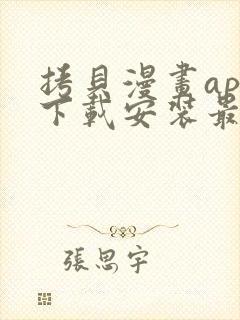 拷貝漫畫ap
下載安裝最
張思宇